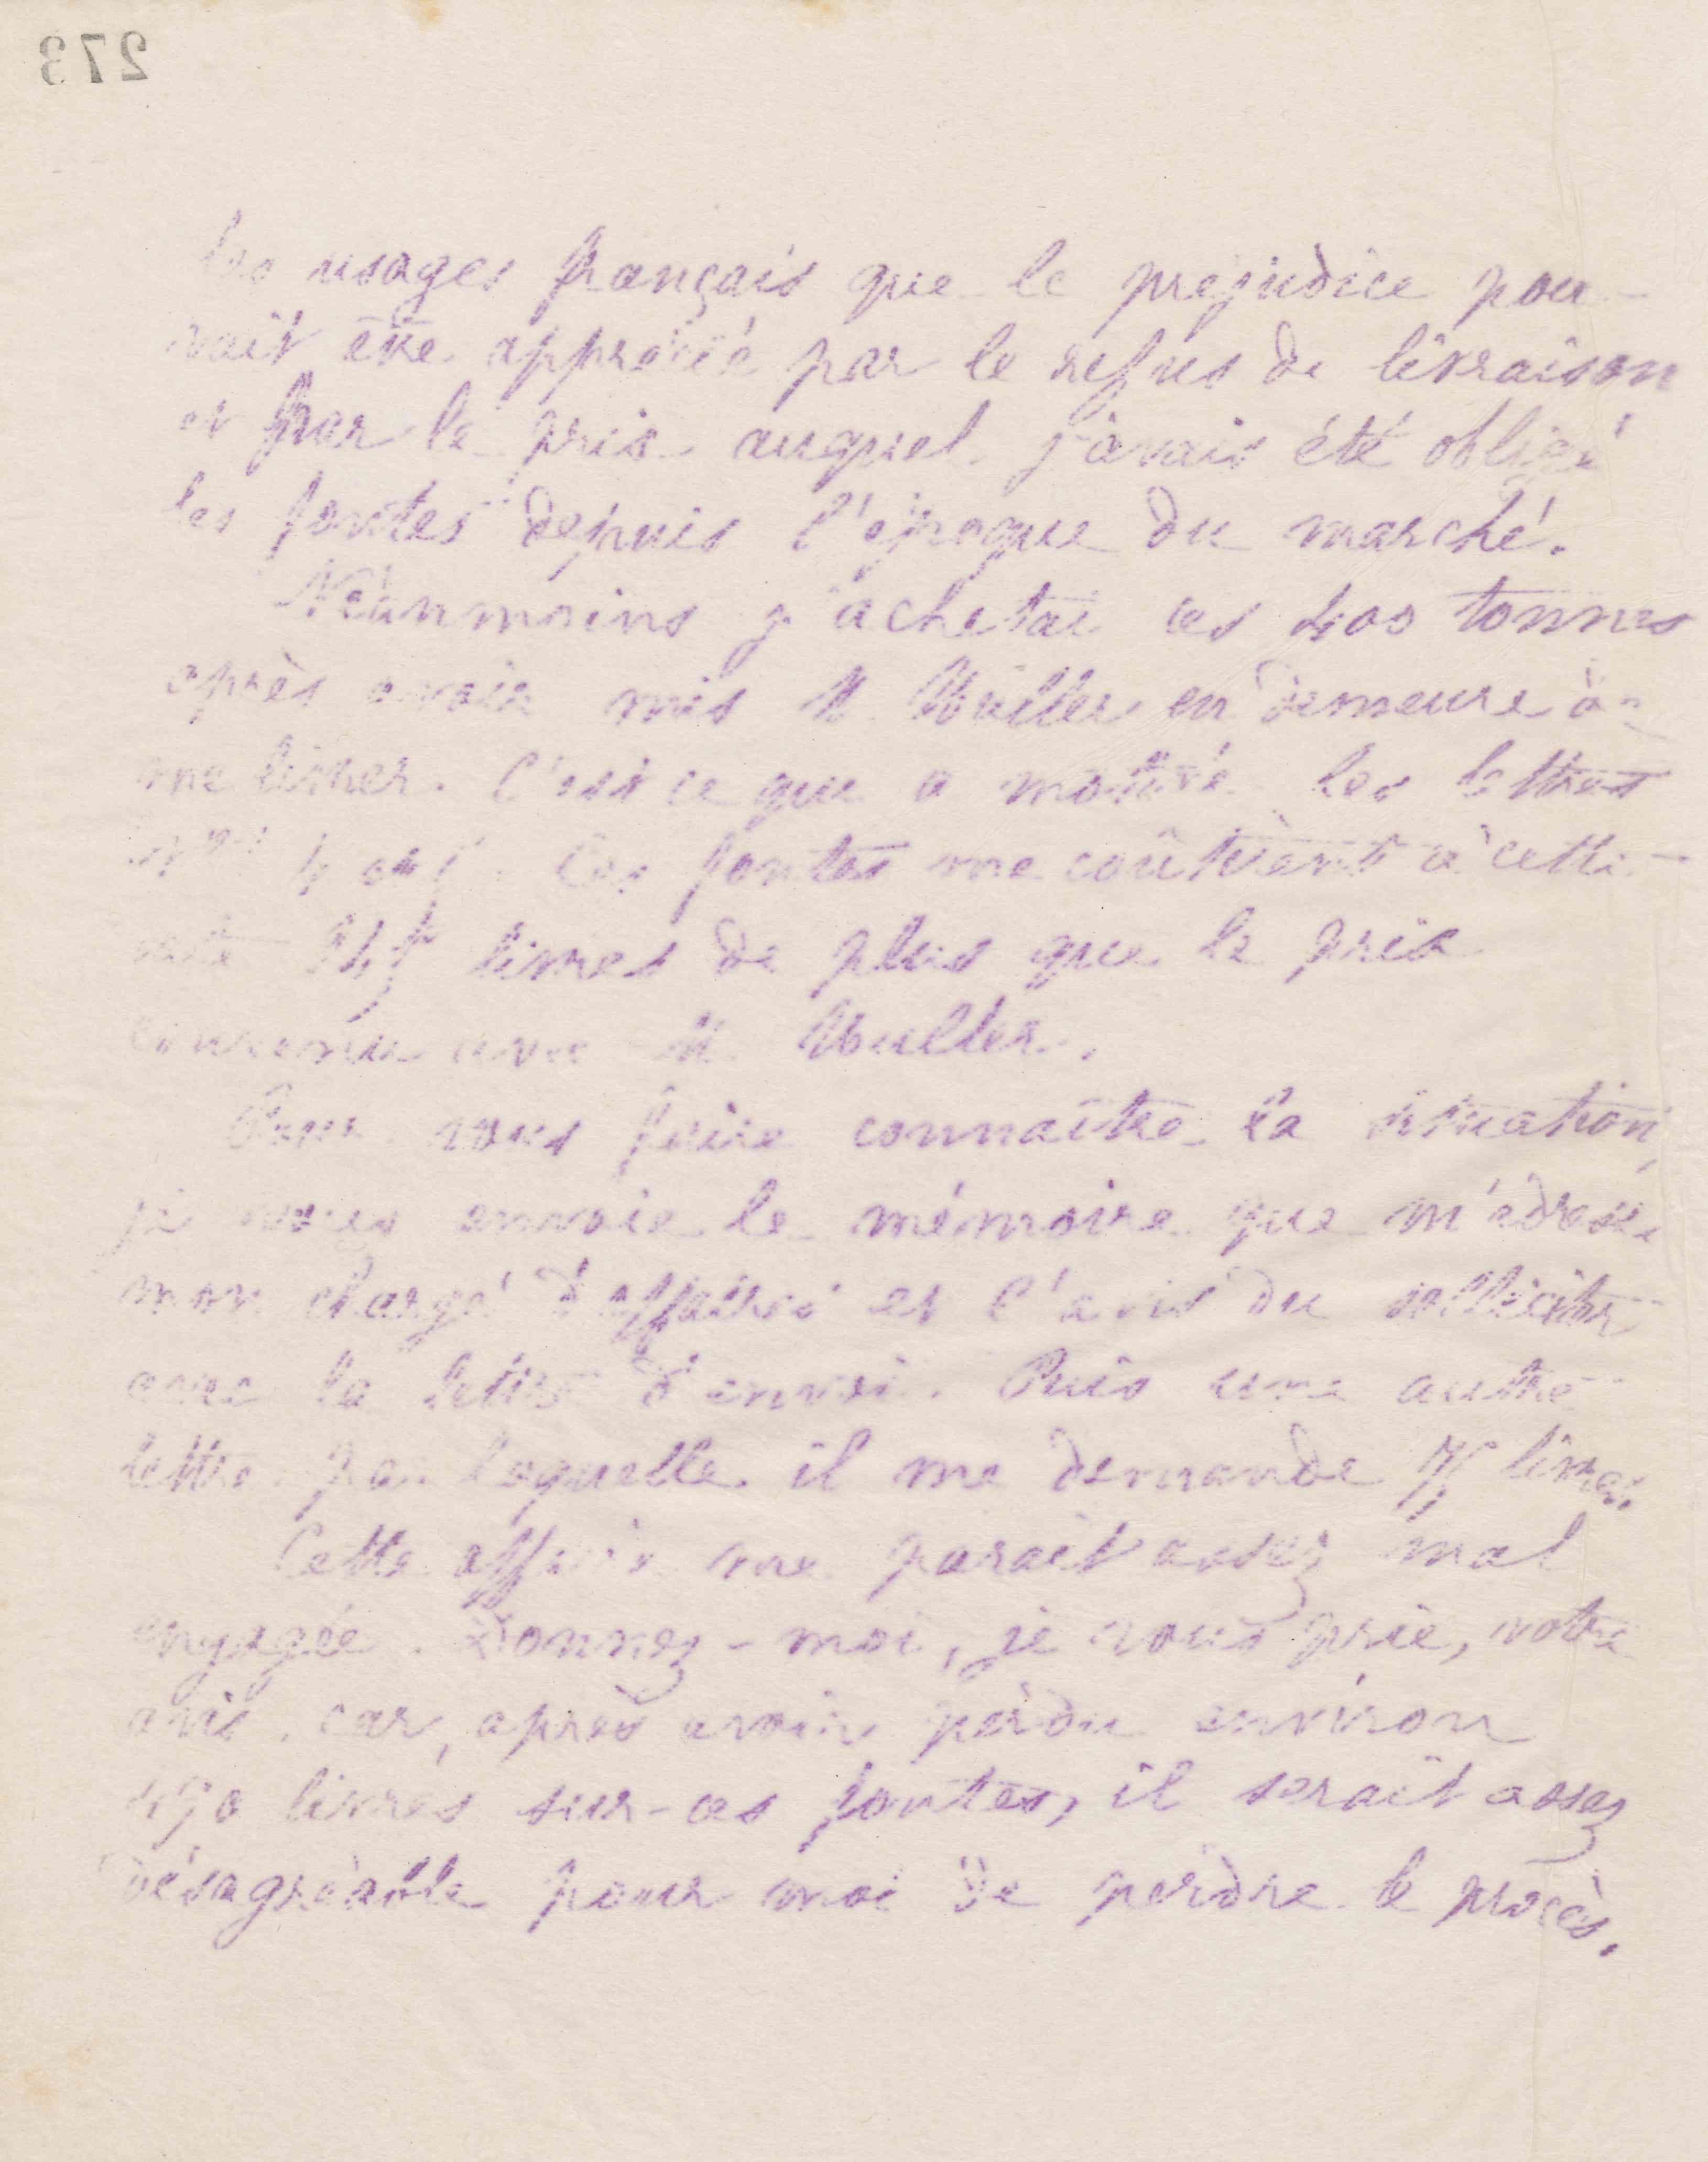 273
les usages français que le préjudice pou-
vait être apprécié par le refus de livraison
et par le prix auquel j'avais été obligé
les fontes depuis l'époque du marché.
Néanmoins j'achetai ces 400 tonnes
après avoir mis M. Muller en demeure de
me livrer. C'est ce que a motivé les lettres
4 et 5. Ces fontes me coûtèrent à cette
date livres de plus que le prix
convenu avec M. Muller.
Pour vous faire connaître la situation,
je vous envoie le mémoire que m'adresse
mon chargé d'affaires et l'avis du sollicitor
avec la lettre d'envoi. Puis une autre
lettre par laquelle il me demande livres.
Cette affaire me paraît assez mal
engagée. Donnez-moi, je vous prie, votre
avis. car, après avoir perdu environ
490 livres sur ces fontes, il serait assez
désagréable pour moi de perdre le procès.